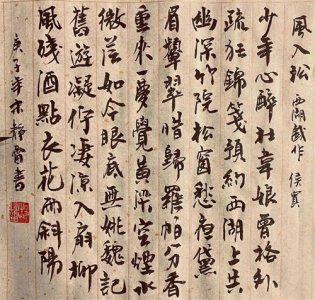 風入松 西湖戲作 侯寘
少年心醉杜韋娘曾格外
疏狂錦箋預約西湖上共
幽深竹院松窗愁夜黛
眉顰翠惜歸羅帕分香
重來一夢覺黃梁空煙水
微茫如今眼底無姚魏記
舊遊凝佇淒涼入扇柳
風殘酒點衣花雨斜陽
庚子年 書